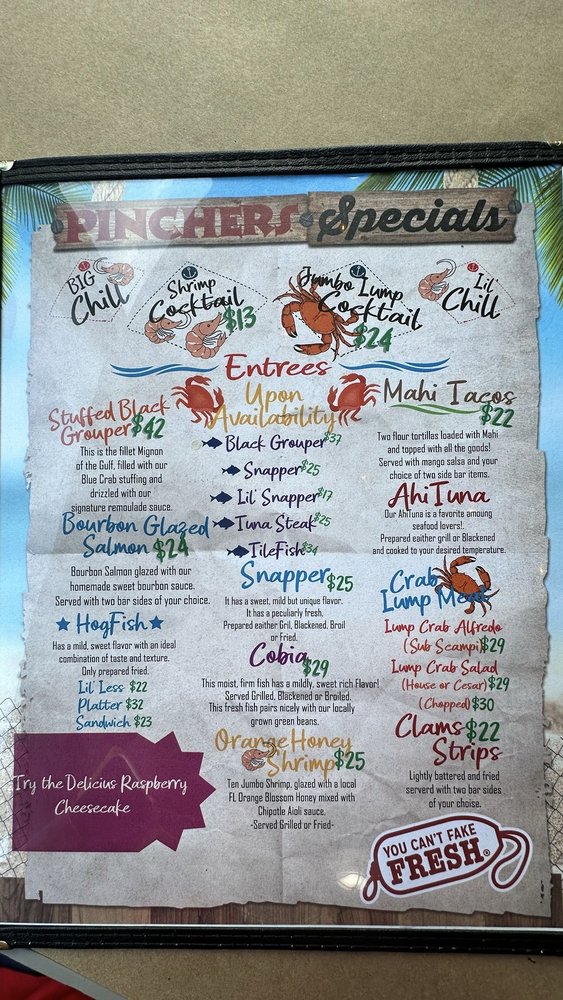 PINCHERS Specials
BIG
Chill
Shrimp
Cocktail
$13
Jumbo Lump
Cocktail
$24
Lil
Chill
Entrees
Stuffed Black
Grouper $42
This is the fillet Mignon
of the Gulf, filled with our
Blue Crab stuffing and
drizzled with our
signature remoulade sauce.
Bourbon Glazed
Salmon $24
Bourbon Salmon glazed with our
homemade sweet bourbon sauce.
Served with two bar sides of your choice.
HogFish
Has a mild, sweet flavor with an ideal
combination of taste and texture.
Only prepared fried.
Lil' Less $22
Platter $32
Sandwich $23
Try the Delicius Raspberry
Cheesecake
Upon
Availability
Black Grouper $37
Snapper $25
Lil' Snapper $17
Tuna Steak $25
TileFish $34
Snapper $25
It has a sweet, mild but unique flavor.
It has a peculiarly fresh.
Prepared eaither Gril, Blackened, Broil
or Fried.
Cobia
$29
This moist, firm fish has a mildly, sweet rich Flavor!
Served Grilled, Blackened or Broiled.
This fresh fish pairs nicely with our locally
grown green beans.
Orange Honey
Shrimp $25
Ten Jumbo Shrimp, glazed with a local
FL Orange Blossom Honey mixed with
Chipotle Aioli sauce.
-Served Grilled or Fried-
Mahi Tacos
$22
Two flour tortillas loaded with Mahi
and topped with all the goods!
Served with mango salsa and your
choice of two side bar items.
Ahi Tuna
Our Ahi Tuna is a favorite amoung
seafood lovers!.
Prepared eaither grill or Blackened
and cooked to your desired temperature.
Crab
Lump Meat
Lump Crab Alfredo
(Sub Scampi) $29
Lump Crab Salad
(House or Cesar) $29
(Chopped) $30
Clams $22
Strips
Lightly battered and fried
serverd with two bar sides
of your choise.
YOU CAN'T FAKE
FRESH®